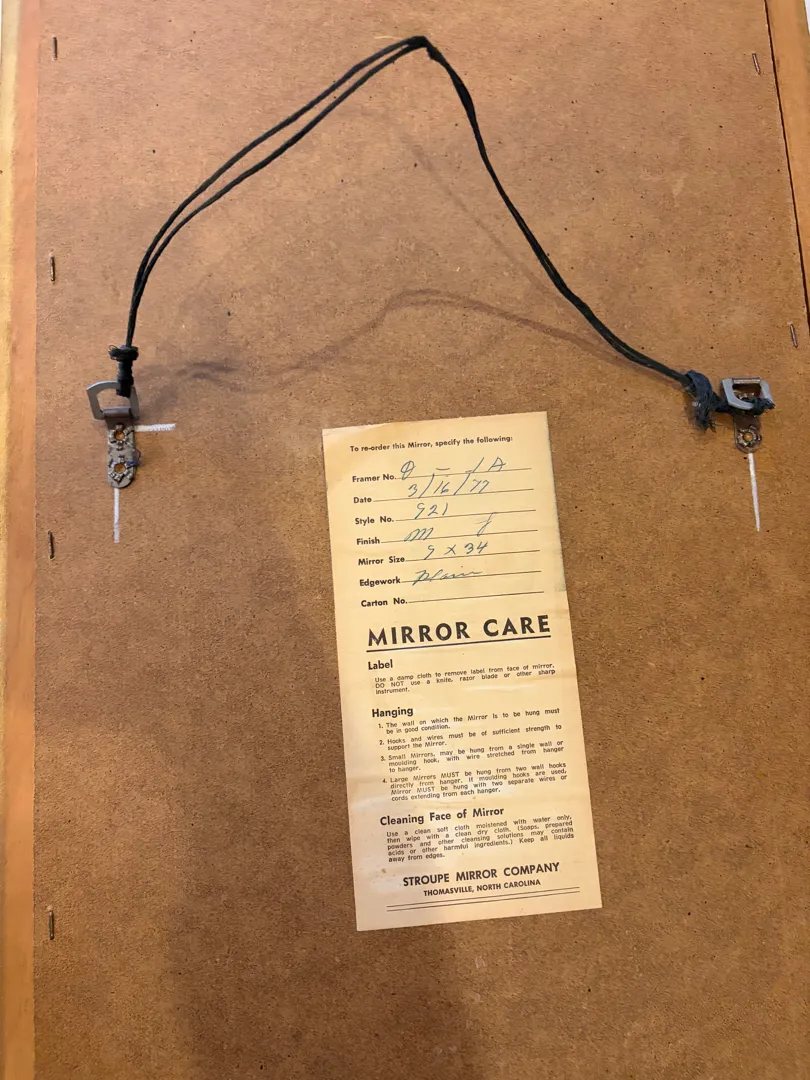 To re-order this Mirror, specify the following:
Framer No.
Date 3/16/77
Style No. 921
Finish
Mirror Size 9 X 34
Edgework Plain
Carton No.
MIRROR CARE
Label
Use a damp cloth to remove label from face of mirror.
DO NOT use a knife, razor blade or other sharp
instrument.
Hanging
1. The wall on which the Mirror is to be hung must
be in good condition.
2. Hooks and wires must be of sufficient strength to
support the Mirror.
3. Small Mirrors, may be hung from a single wall or
moulding hook, with wire stretched from hanger
to hanger.
4. Large Mirrors MUST be hung from two wall hooks
directly from hanger. If moulding hooks are used,
Mirror MUST be hung with two separate wires or
cords extending from each hanger.
Cleaning Face of Mirror
Use a clean soft cloth moistened with water only,
then wipe with a clean dry cloth. (Soaps, prepared
powders and other cleansing solutions may contain
acids or other harmful ingredients.) Keep all liquids
away from edges.
STROUPE MIRROR COMPANY
THOMASVILLE, NORTH CAROLINA